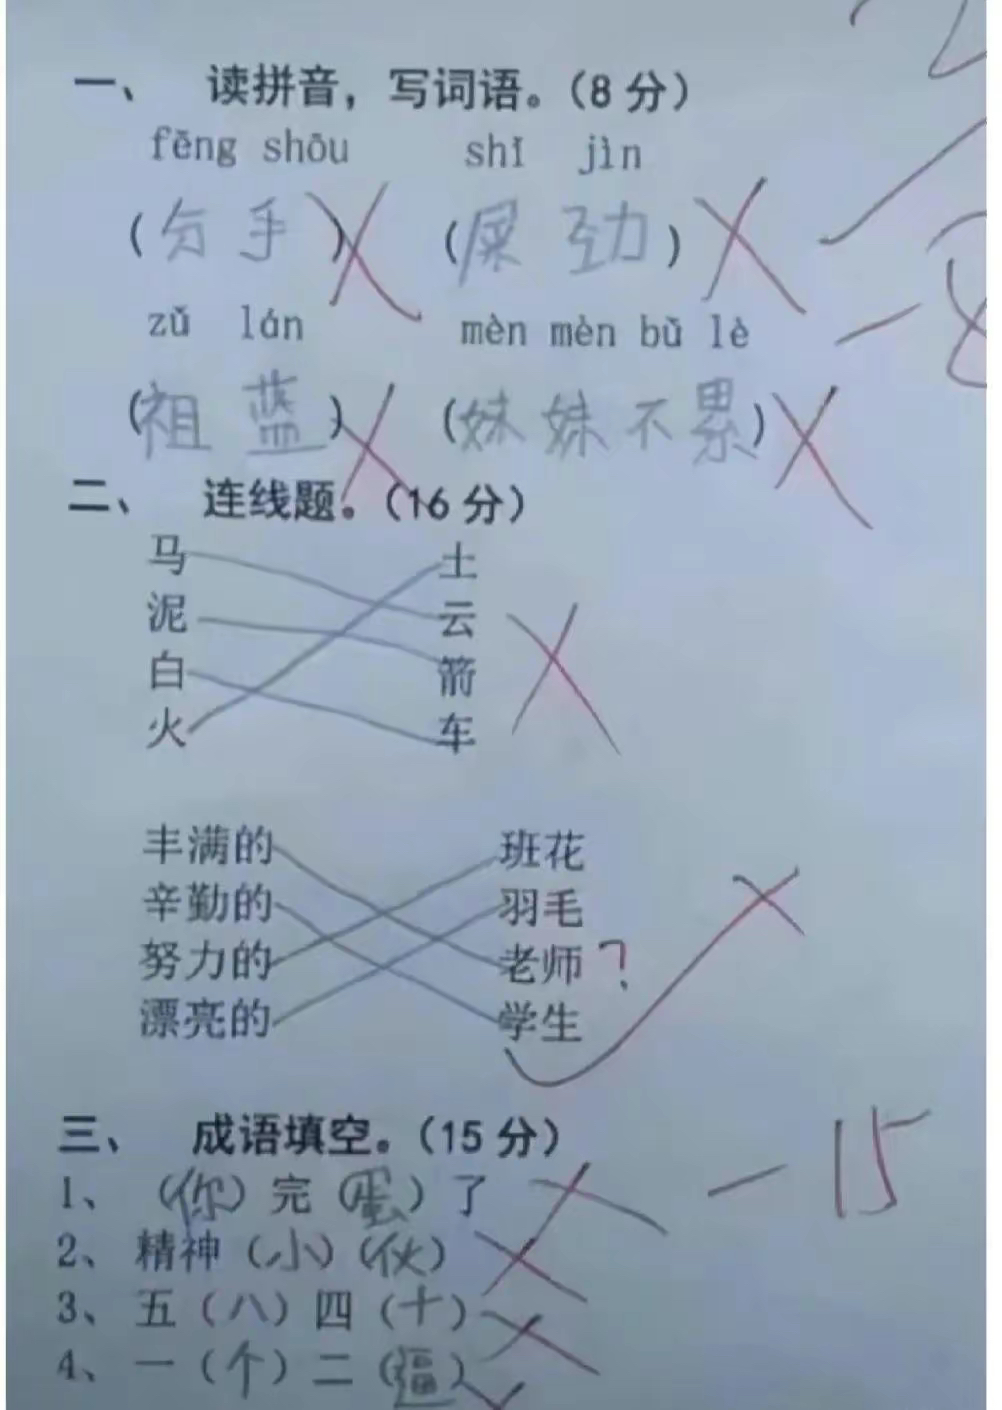 一、 读拼音，写词语。（8 分）
fēng shōu shī jìn
（分 手 ） （屎 劲 ）
zǔ lán mèn mèn bǔ lè
（祖 蓝 ） （妹 妹 不 累）
二、 连线题。（16 分）
马 土
泥 云
白 箭
火 车
丰满的 班花
辛勤的 羽毛
努力的 老师 ?
漂亮的 学生
三、 成语填空。（15 分） -15
1、（你）完（蛋）了
2、精神（小）（伙）
3、五（八）四（十）
4、一（个）二（逼）